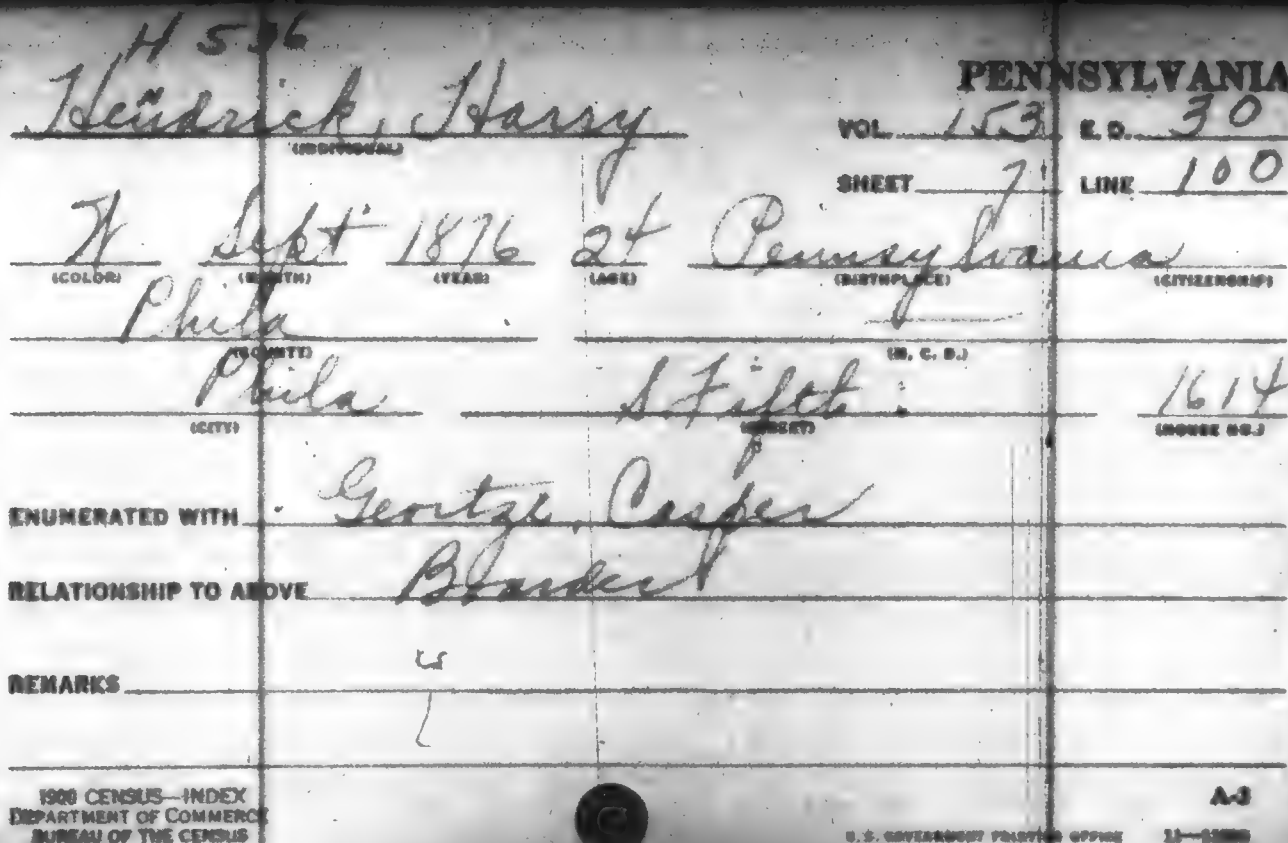 H 536
PENNSYLVANIA
Hendrick, Harry
(INDIVIDUAL)
VOL. 153 E. D. 30
SHEET 7 LINE 100
W Sept 1876 24 Pennsylvania
(COLOR) (MONTH) (YEAR) (AGE) (BIRTHPLACE) (CITIZENSHIP)
Phila
(COUNTY) (M. C. D.)
Phila S. Fifth 1614
(CITY) (STREET) (HOUSE NO.)
ENUMERATED WITH Geortze, Casper
RELATIONSHIP TO ABOVE Boarder
REMARKS
1900 CENSUS—INDEX
DEPARTMENT OF COMMERCE
BUREAU OF THE CENSUS
A-3
U.S. GOVERNMENT PRINTING OFFICE